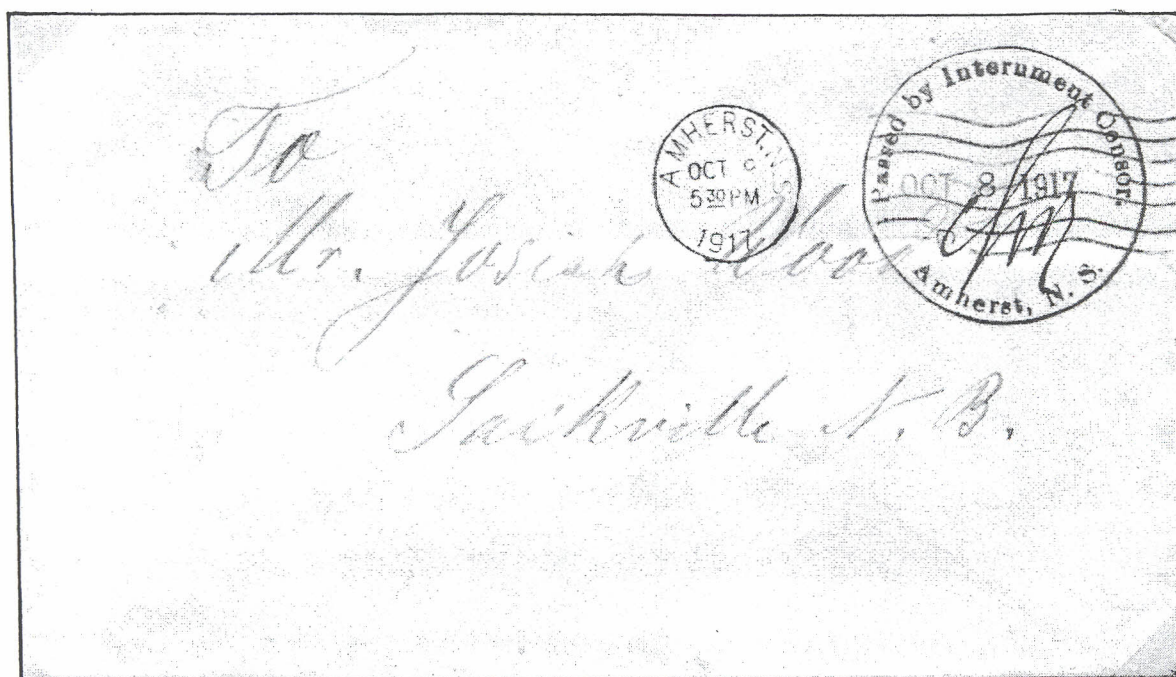 To
Mr. Josiah Wood
Saikville N. B.
AMHERST. N.S.
OCT
5 30 PM
1917
Passed by Internment Censor.
OCT 8 1917
Amherst, N. S.